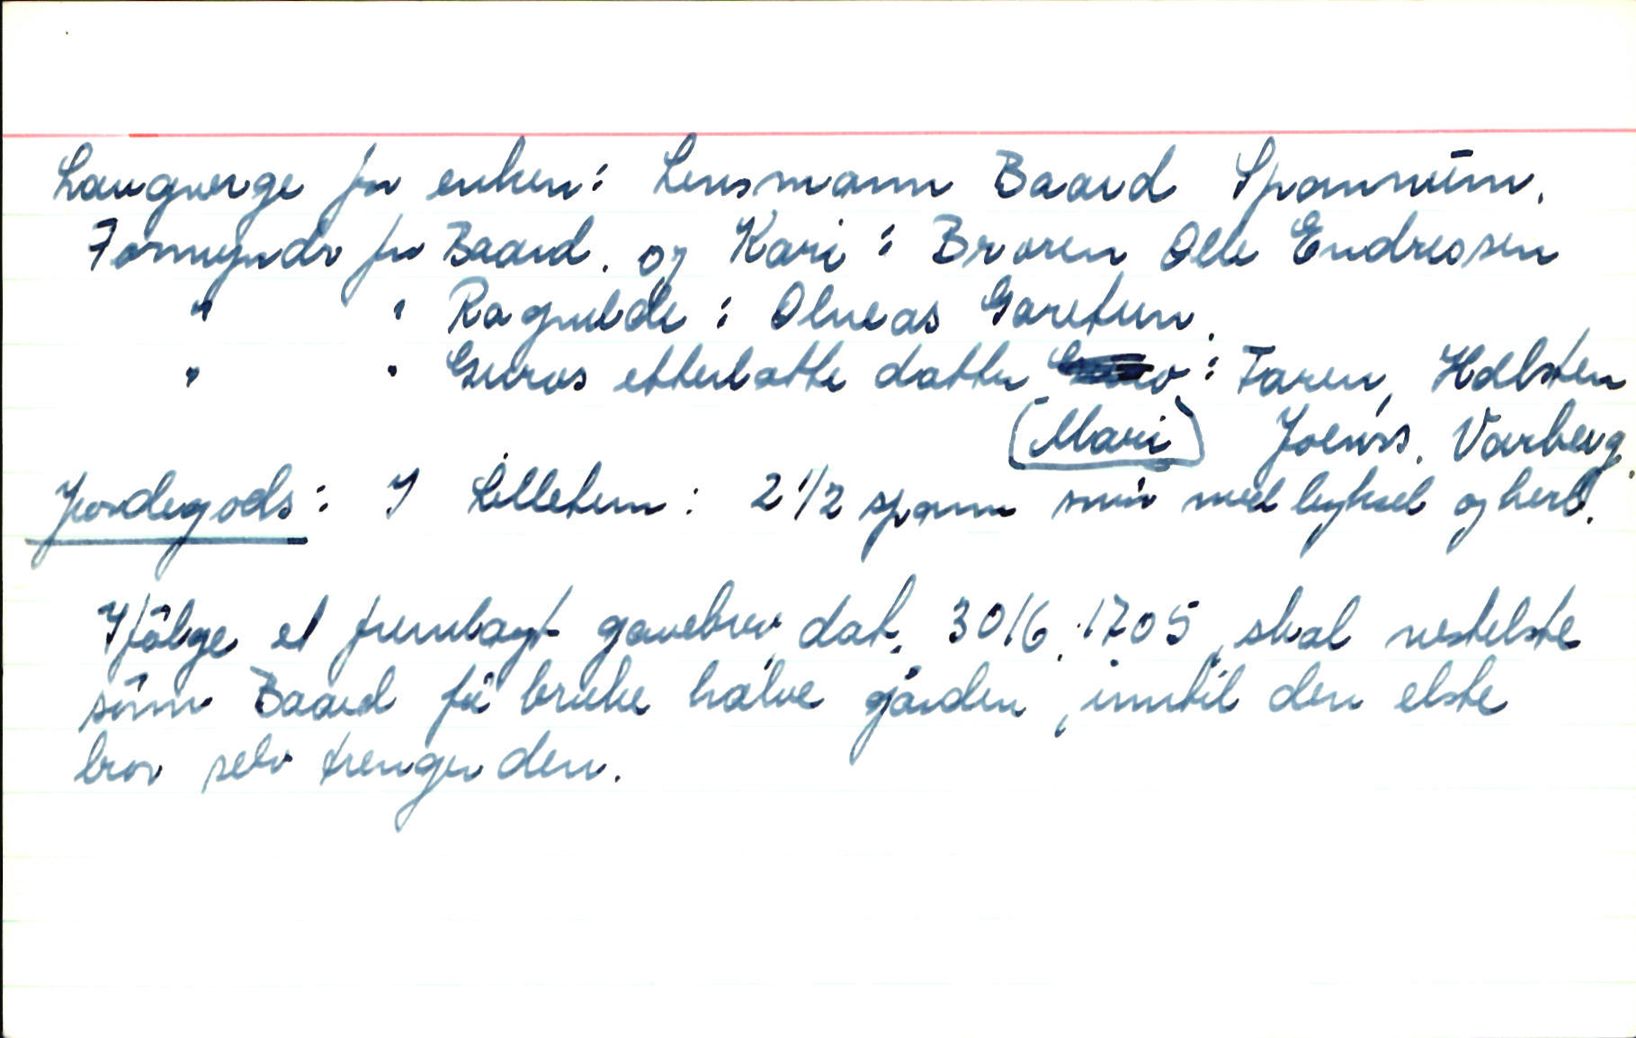 Laugverge for enken: Lensmann Baard Spånnum.
Formynder for Baard. og Kari: Broren Olle Endresen
" " Ragnilde: Olneas Garetun.
" " Guros etterlatte datter: Faren, Holsten
(Mari) Joenss. Varberg.
Jordegods: I Lilletun: 2 1/2 spann smør med leyksel og herl.
Ifølge et fremlagt gavebrev dat. 30/6.1705, skal nestelste
sønn Baard få bruke halve gården, inntil den elste
bror selv trenger den.